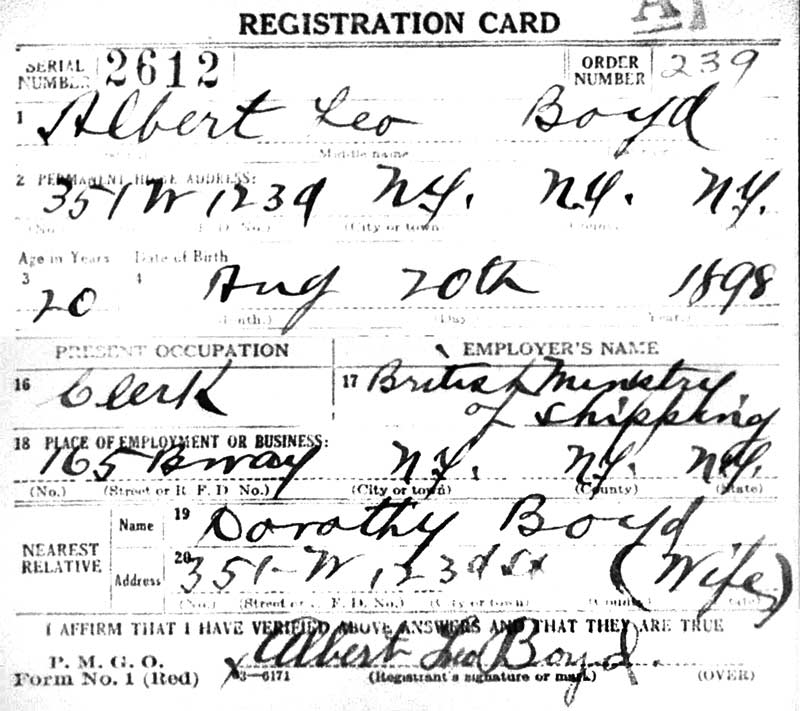 REGISTRATION CARD
SERIAL NUMBER 2612 ORDER NUMBER 239
1 Albert Leo Boyd
Middle name
2 PERMANENT HOME ADDRESS:
351 W 123d N.Y. N.Y. N.Y.
(No.) F. D. No.) (City or town) County
Age in Years Date of Birth
3 20 4 Aug 20th 1898
(Month.) (Day.) (Year.)
PRESENT OCCUPATION EMPLOYER'S NAME
16 Clerk 17 British Ministry
of Shipping
18 PLACE OF EMPLOYMENT OR BUSINESS:
165 Bway N.Y. N.Y. N.Y.
(No.) (Street or R. F. D. No.) (City or town) (County) (State)
NEAREST RELATIVE Name 19 Dorothy Boyd
Address 20 351-W 123d St (Wife)
(No.) (Street or R. F. D. No.) (City or town) (County) (State)
I AFFIRM THAT I HAVE VERIFIED ABOVE ANSWERS AND THAT THEY ARE TRUE
P. M. G. O.
Form No. 1 (Red) 03-6171 x Albert Leo Boyd.
(Registrant's signature or mark) (OVER)